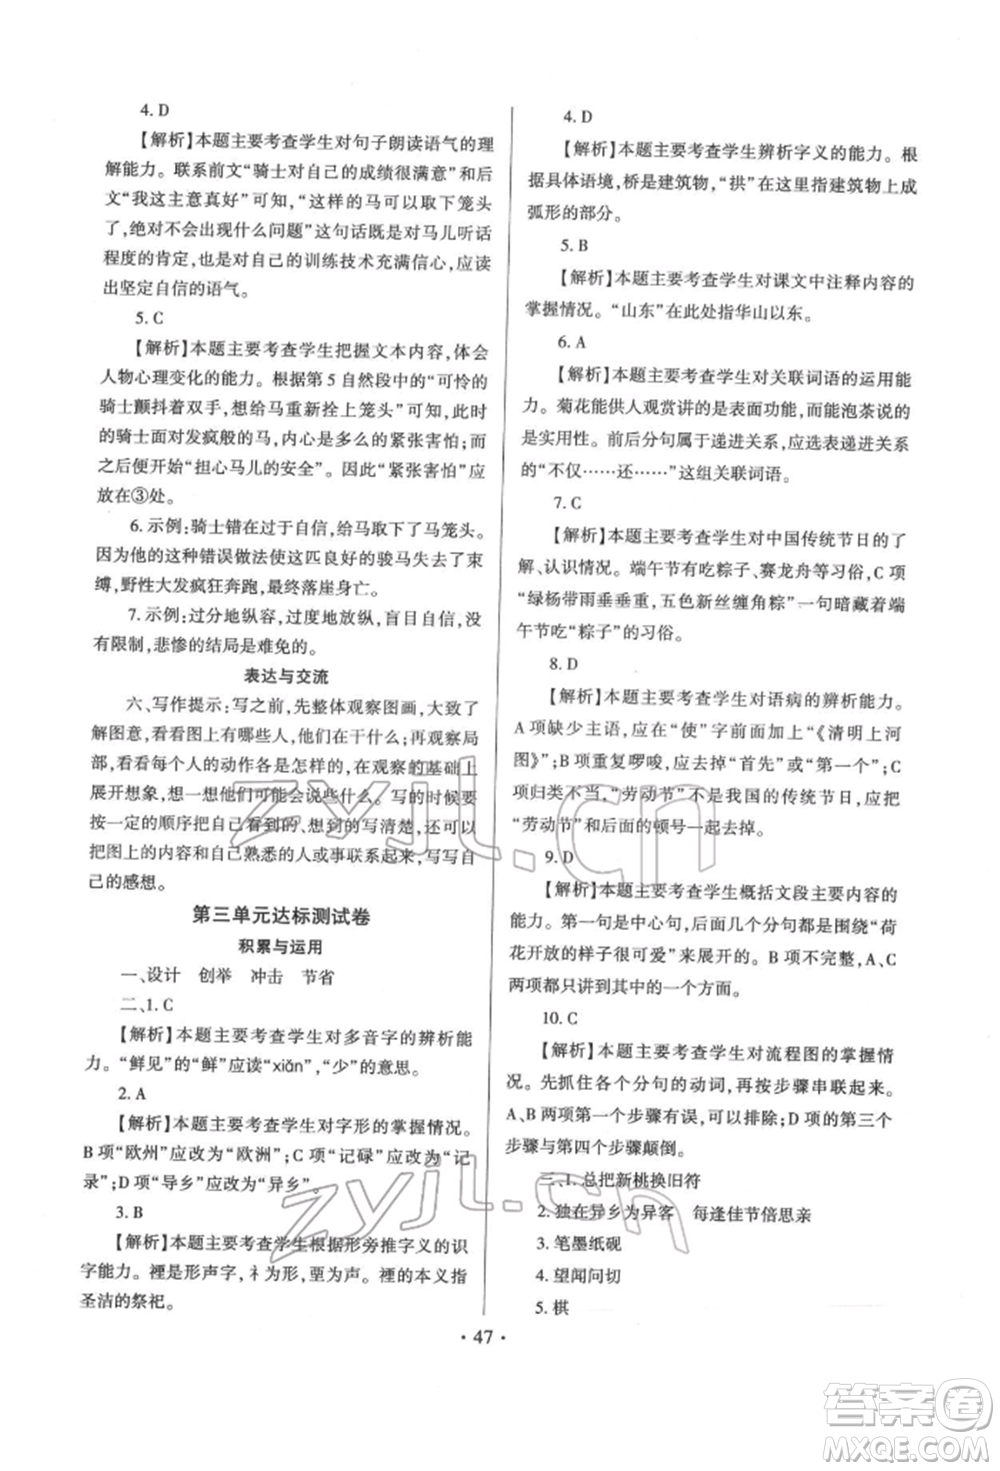 4. D
【解析】本题主要考查学生对句子朗读语气的理
解能力。联系前文“骑士对自己的成绩很满意”和后
文“我这主意真好”可知，“这样的马可以取下笼头
了，绝对不会出现什么问题”这句话既是对马儿听话
程度的肯定，也是对自己的训练技术充满信心，应读
出坚定自信的语气。
5. C
【解析】本题主要考查学生把握文本内容，体会
人物心理变化的能力。根据第 5 自然段中的“可怜的
骑士颤抖着双手，想给马重新拴上笼头”可知，此时
的骑士面对发疯般的马，内心是多么的紧张害怕；而
之后便开始“担心马儿的安全”。因此“紧张害怕”应
放在③处。
6. 示例：骑士错在过于自信，给马取下了马笼头。
因为他的这种错误做法使这匹良好的骏马失去了束
缚，野性大发疯狂奔跑，最终落崖身亡。
7. 示例：过分地纵容，过度地放纵，盲目自由，没
有限制，悲惨的结局是难免的。
表达与交流
六、写作提示：写之前，先整体观察图画，大致了
解图意，看看图上有哪些人，他们在干什么；再观察局
部，看看每个人的动作各是怎样的，在观察的基础上
展开想象，想一想他们可能会说些什么。写的时候要
按一定的顺序把自己看到的、想到的写清楚，还可以
把图上的内容和自己熟悉的人或事联系起来，写写自
己的感想。
第三单元达标测试卷
积累与运用
一、设计　创举　冲击　节省
二、1. C
【解析】本题主要考查学生对多音字的辨析能
力。“鲜见”的“鲜”应读“xiǎn”，“少”的意思。
2. A
【解析】本题主要考查学生对字形的掌握情况。
B 项“欧州”应改为“欧洲”；C 项“记碌”应改为“记
录”；D 项“导乡”应改为“异乡”。
3. B
【解析】本题主要考查学生根据形旁推字义的识
字能力。禋是形声字，礻为形，垔为声。禋的本义指
圣洁的祭祀。
4. D
【解析】本题主要考查学生辨析字义的能力。根
据具体语境，桥是建筑物，“拱”在这里指建筑物上成
弧形的部分。
5. B
【解析】本题主要考查学生对课文中注释内容的
掌握情况。“山东”在此处指华山以东。
6. A
【解析】本题主要考查学生对关联词语的运用能
力。菊花能供人观赏讲的是表面功能，而能泡茶说的
是实用性。前后分句属于递进关系，应选表递进关系
的“不仅……还……”这组关联词语。
7. C
【解析】本题主要考查学生对中国传统节日的了
解、认识情况。端午节有吃粽子、赛龙舟等习俗，C 项
“绿杨带雨垂垂重，五色新丝缠角粽”一句暗藏着端
午节吃“粽子”的习俗。
8. D
【解析】本题主要考查学生对语病的辨析能力。
A 项缺少主语，应在“使”字前面加上“《清明上河
图》”；B 项重复啰唆，应去掉“首先”或“第一”；C
项归类不当，“劳动节”不是我国的传统节日，应把
“劳动节”和后面的顿号一起去掉。
9. D
【解析】本题主要考查学生概括文段主要内容的
能力。第一句是中心句，后面几个分句都是围绕“荷
花开放的样子很可爱”来展开的。B 项不完整，A、C
两项都只讲到其中的一个方面。
10. C
【解析】本题主要考查学生对流程图的掌握情
况。先抓住各个分句的动词，再按步骤串联起来。
A、B 两项的步骤有误，可以排除；D 项的第三个
步骤与第四个步骤颠倒。
三、1. 总把新桃换旧符
2. 独在异乡为异客　每逢佳节倍思亲
3. 笔墨纸砚
4. 望闻问切
5. 棋
· 47 ·
zyjl.cn
zyjl.cn
答案卷
MXQE.COM